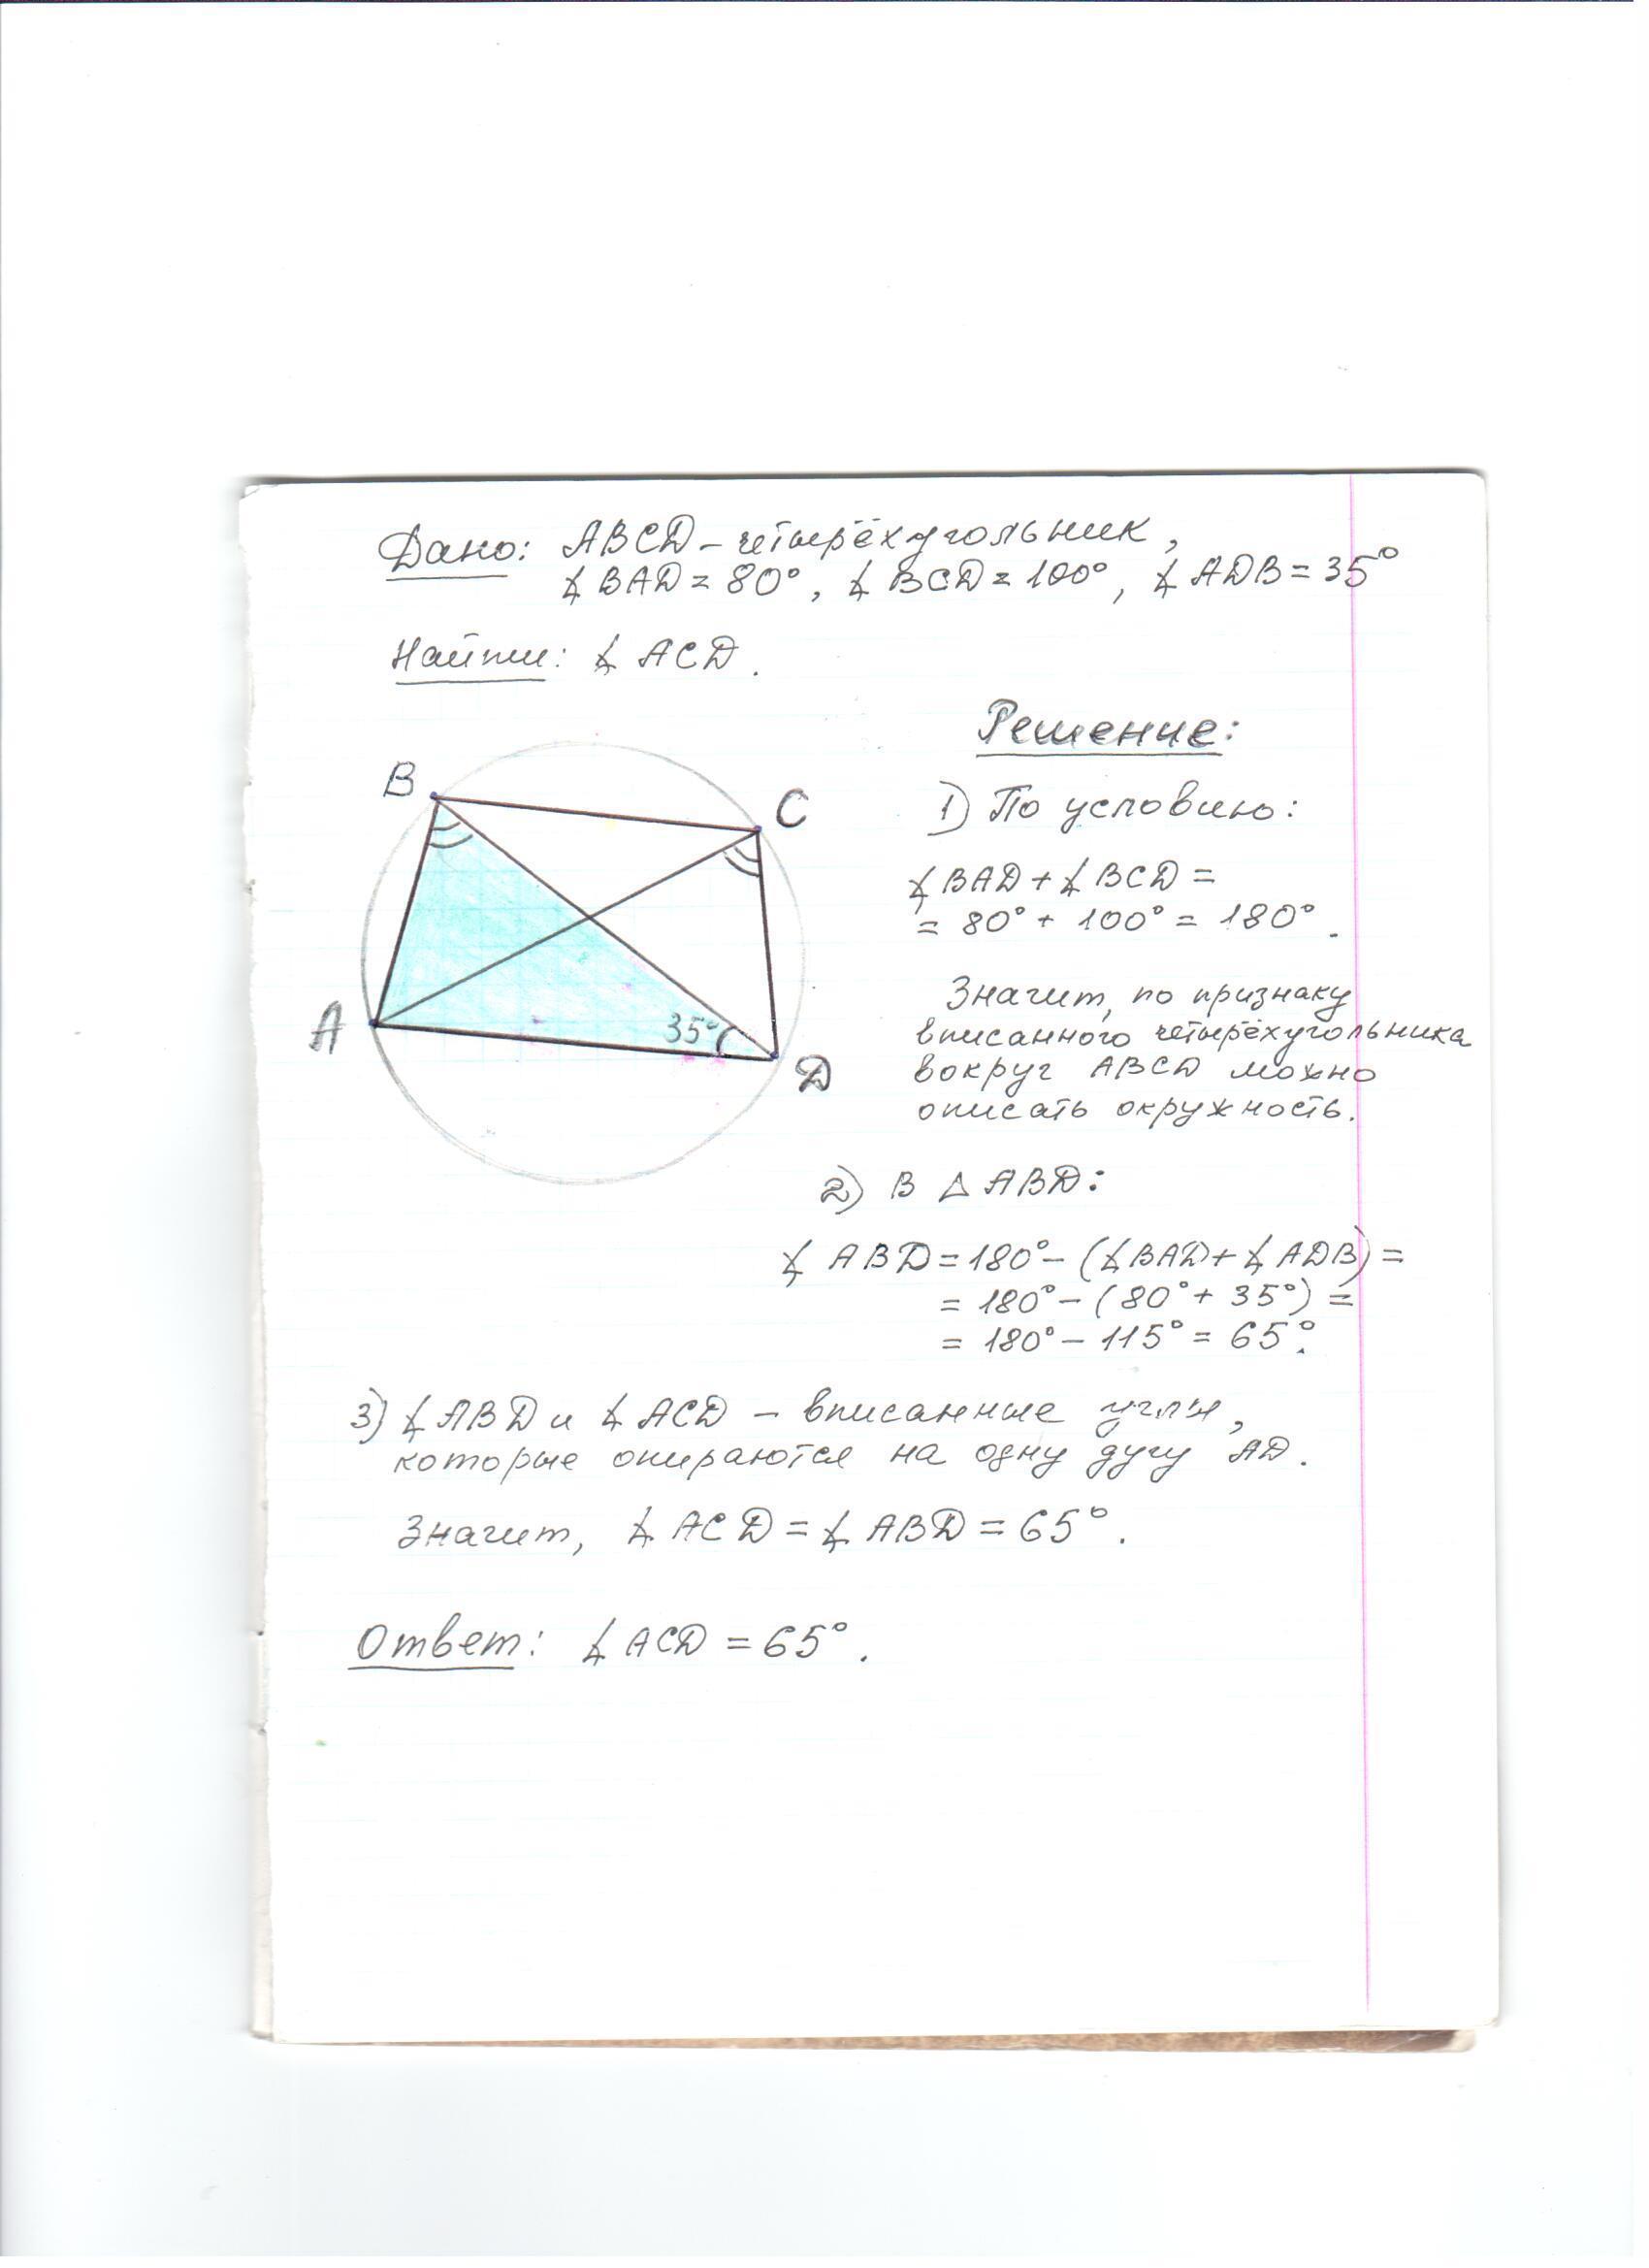 Дано: ABCD – четырёхугольник,
∡ BAD = 80°, ∡ BCD = 100°, ∡ ADB = 35°
Найти: ∡ ACD.
Решение:
1) По условию:
∡ BAD + ∡ BCD =
= 80° + 100° = 180°.
Значит, по признаку
вписанного четырёхугольника
вокруг ABCD можно
описать окружность.
B
C
A
35°
D
2) В △ ABD:
∡ ABD = 180° – (∡ BAD + ∡ ADB) =
= 180° – (80° + 35°) =
= 180° – 115° = 65°.
3) ∡ ABD и ∡ ACD – вписанные углы,
которые опираются на одну дугу AD.
Значит, ∡ ACD = ∡ ABD = 65°.
Ответ: ∡ ACD = 65°.